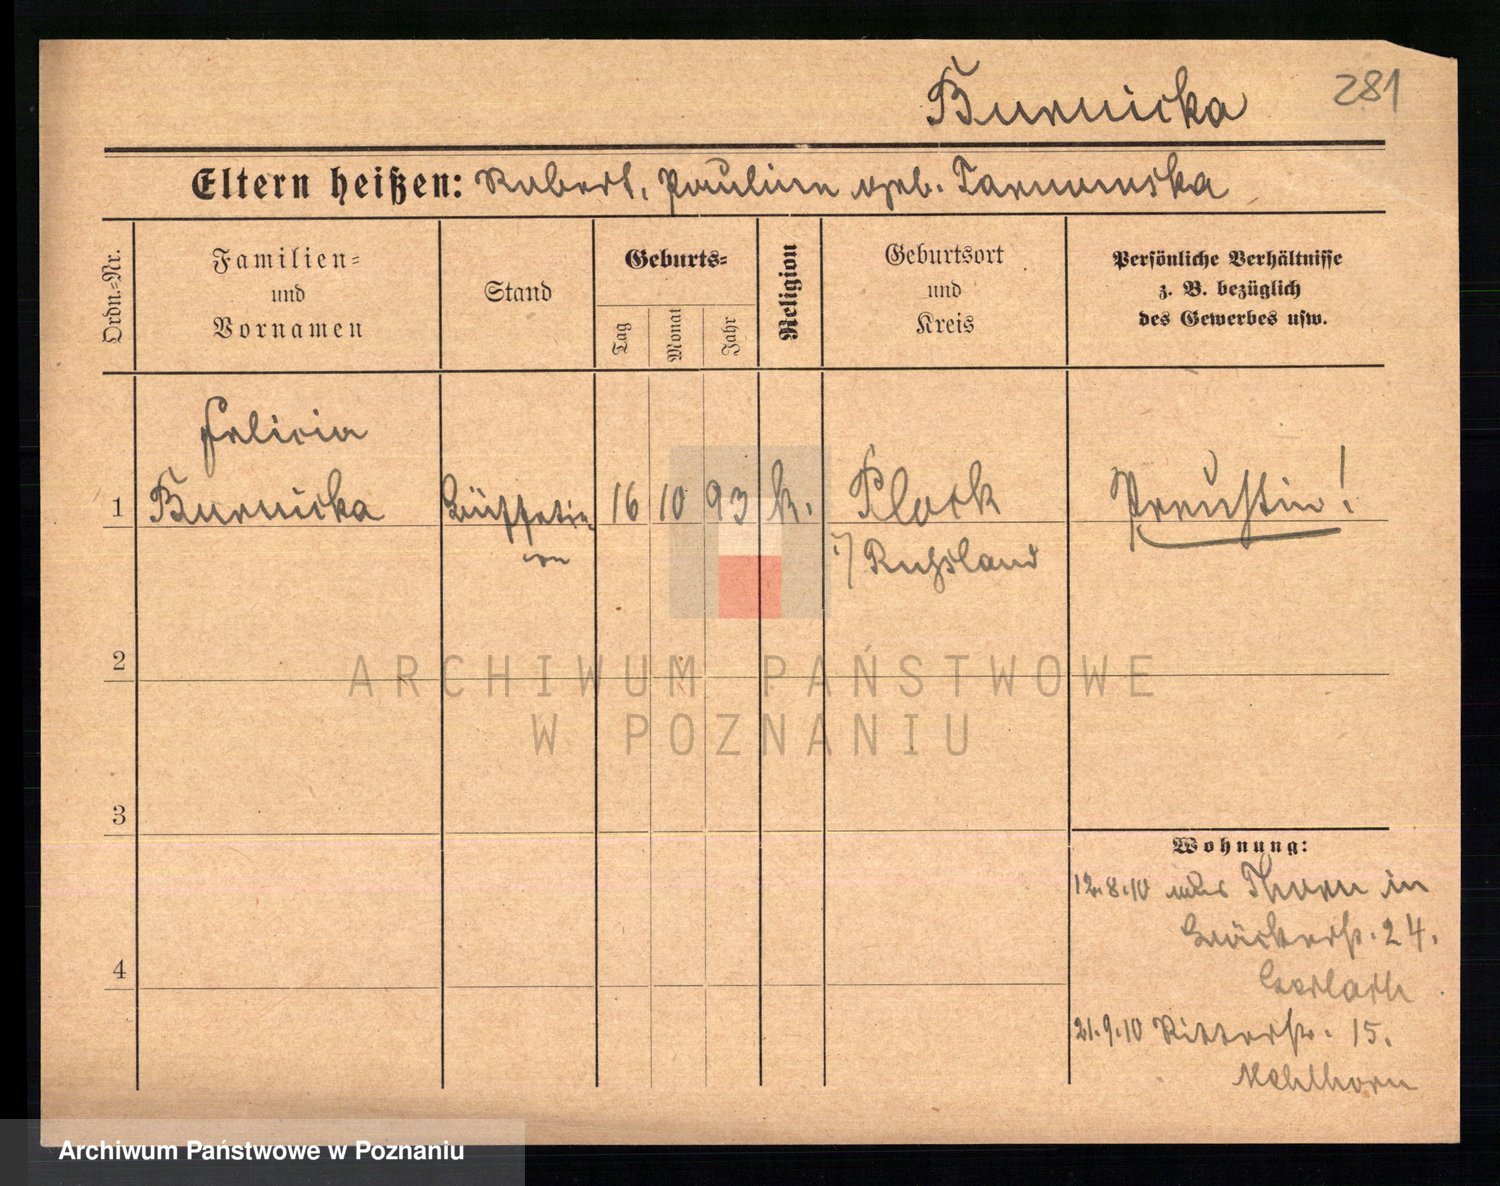 Burnicka
281
Eltern heißen: Robert, Pauline geb. Tarnowska
Ordn.-Nr.
Familien-
und
Vornamen
Stand
Geburts-
Tag
Monat
Jahr
Religion
Geburtsort
und
Kreis
Persönliche Verhältnisse
z. B. bezüglich
des Gewerbes usw.
Felicia
1 Burnicka 16 10 93 k. Plock Preußin!
i/ Rußland
2
3
4
Wohnung:
12.8.10 aus Thorn in
Bäckerstr. 24.
Gerlach
21.9.10 Ritterstr. 15.
Mehlhorn
ARCHIWUM PAŃSTWOWE
W POZNANIU
Archiwum Państwowe w Poznaniu